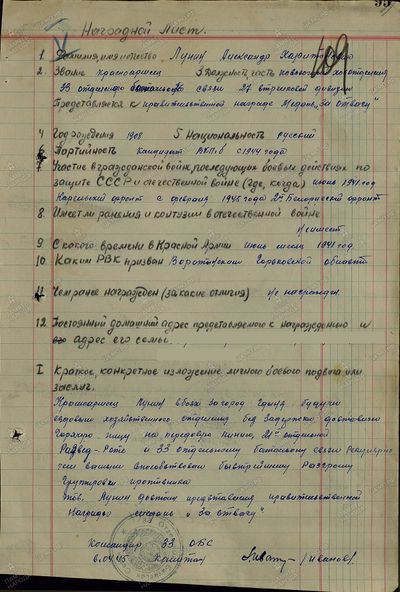 95
Наградной Лист.
109
1 Фамилия, имя и отчество Лунин Александр Харитонович
2. Звание красноармеец 3. Должность, часть
33 отдельного батальона связи 27 стрелковой дивизии
Представляется к правительственной награде Медаль "за отвагу"
4 Год рождения 1908 5 Национальность русский
6 Партийность кандидат ВКП.б с 1944 года
7 Участие в гражданской войне, последующих боевых действиях по
защите СССР и отечественной войне (где, когда) июнь 1941 год
Карельский фронт с февраля 1945 года 2й Белорусский фронт
8 Имеет ли ранения и контузии в отечественной войне
9 С какого времени в Красной Армии июнь месяц 1941 год
10 Каким РВК призван Воротынским Горьковской области
11 Чем ранее награжден (за какие отличия) не награжден
12 Постоянный домашний адрес представляемого к награждению и
адрес его семьи.
I Краткое, конкретное изложение личного боевого подвига или
заслуг.
Красноармеец Лунин в боях за город Гдыня будучи
ездовым хозяйственного отделения без задержки доставлял
горячую пищу на передовую линию 21й отдельной
Развед-Роте и 33 отдельному батальону связи
чем самым способствовал быстрейшему Разгрому
Группировки противника
тов. Лунин достоин представления правительственной
награды медаль "За отвагу"
Командир 33 ОБС
6.04.45 Капитан /Иванов/